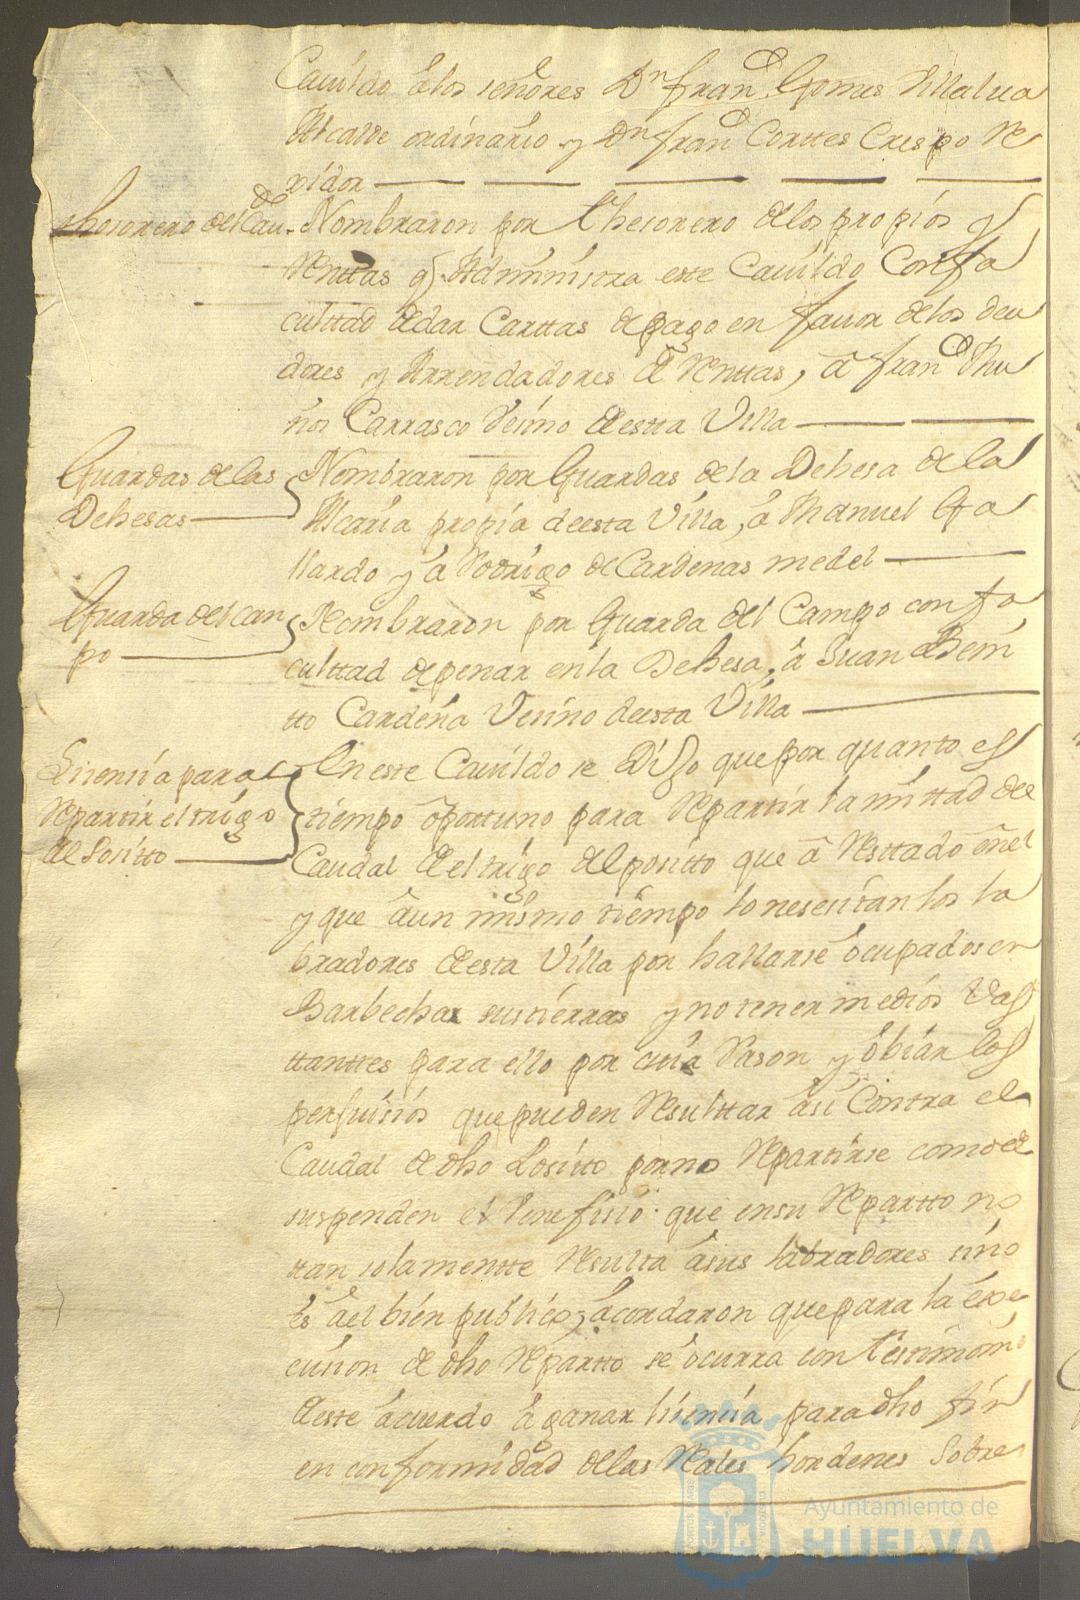 Cavildo â los señores Dn. Franco. Gomes Villalva
Alcalde ordinario y Dn. Franco. Corttes Crespo Re
xidor
thesorero del Cavdo. Nombraron por thesorero de los propios y
Renttas q. Administra este Cavildo Con fa
culttad de dar Carttas de pago en favor de los deu
dores y Arrendadores de Renttas, â Franco.
Carrasco Vesino de estta Villa
Guardas de las
Dehesas
Nombraron por Guardas de la Dehesa de la
Alcaria propia de esta Villa, â Manuel Ga
llardo y â Rodrigo de Cardenas medel
Guarda del can
po
Nombraron por Guarda del Campo con fa
culttad de penar en la Dehesa, â Juan Beni
tto Cardeña Vesino de esta Villa
Lisensia para
Repartir el trigo
del Positto
En este Cavildo se Dijo que por quanto es
tiempo ôportuno para Repartir la mittad del
Caudal de el trigo del positto que â Resttado en el
y que âun mismo tiempo lo nesesitan los la
bradores de esta Villa por hallarse ôcupados en
Barbechar sus tierras y no tener medios Vas
ttanttes para ello por cuia Rason y ôbiar los
perjuisios que pueden Resulttar âsi Contra el
Caudal de dho Positto por no Repartirse como de
suspender el Venefisio que en su Repartto no
ttan solamentte Resulta âsus labradores sino
es âel bien publico, âcordaron que para la exe
cusion de dho Repartto se ôcurra con testimonio
de este âcuerdo â ganar lisensia para dho fin
en conformidad de las Reales hordenes sobre
Ayuntamiento de
HUELVA